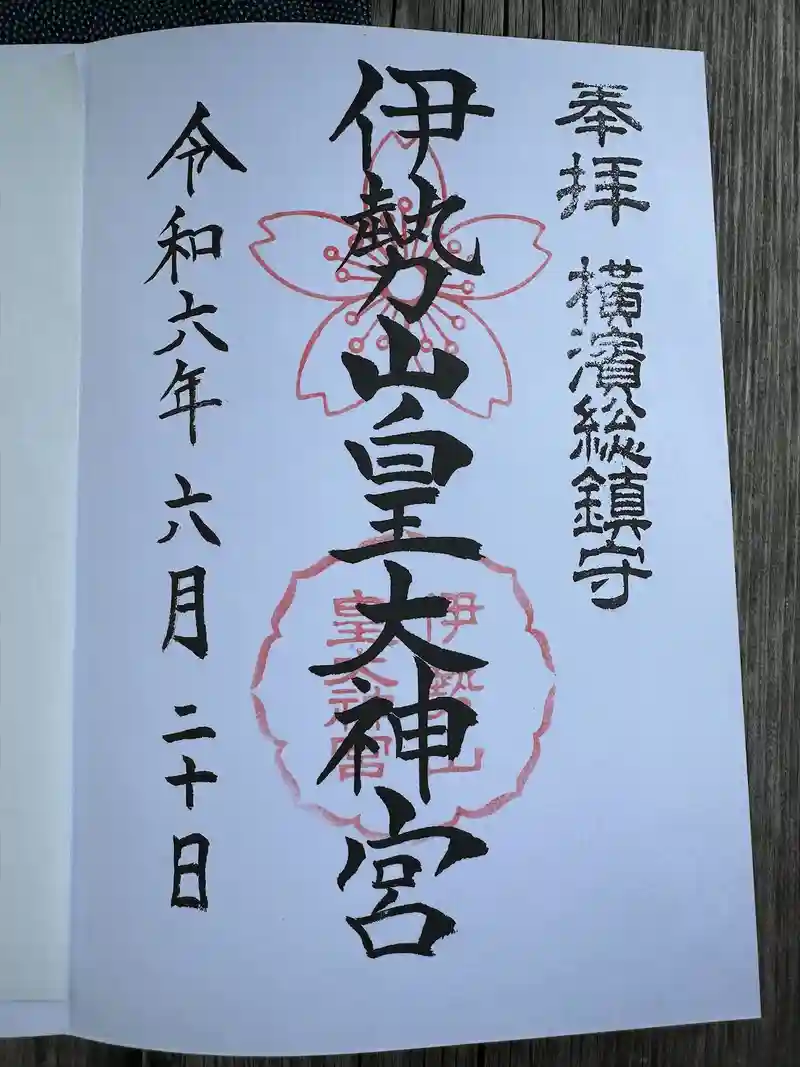 奉拝 横濱総鎮守
伊勢山皇大神宮
伊勢山
皇大神宮
令和六年 六月 二十日